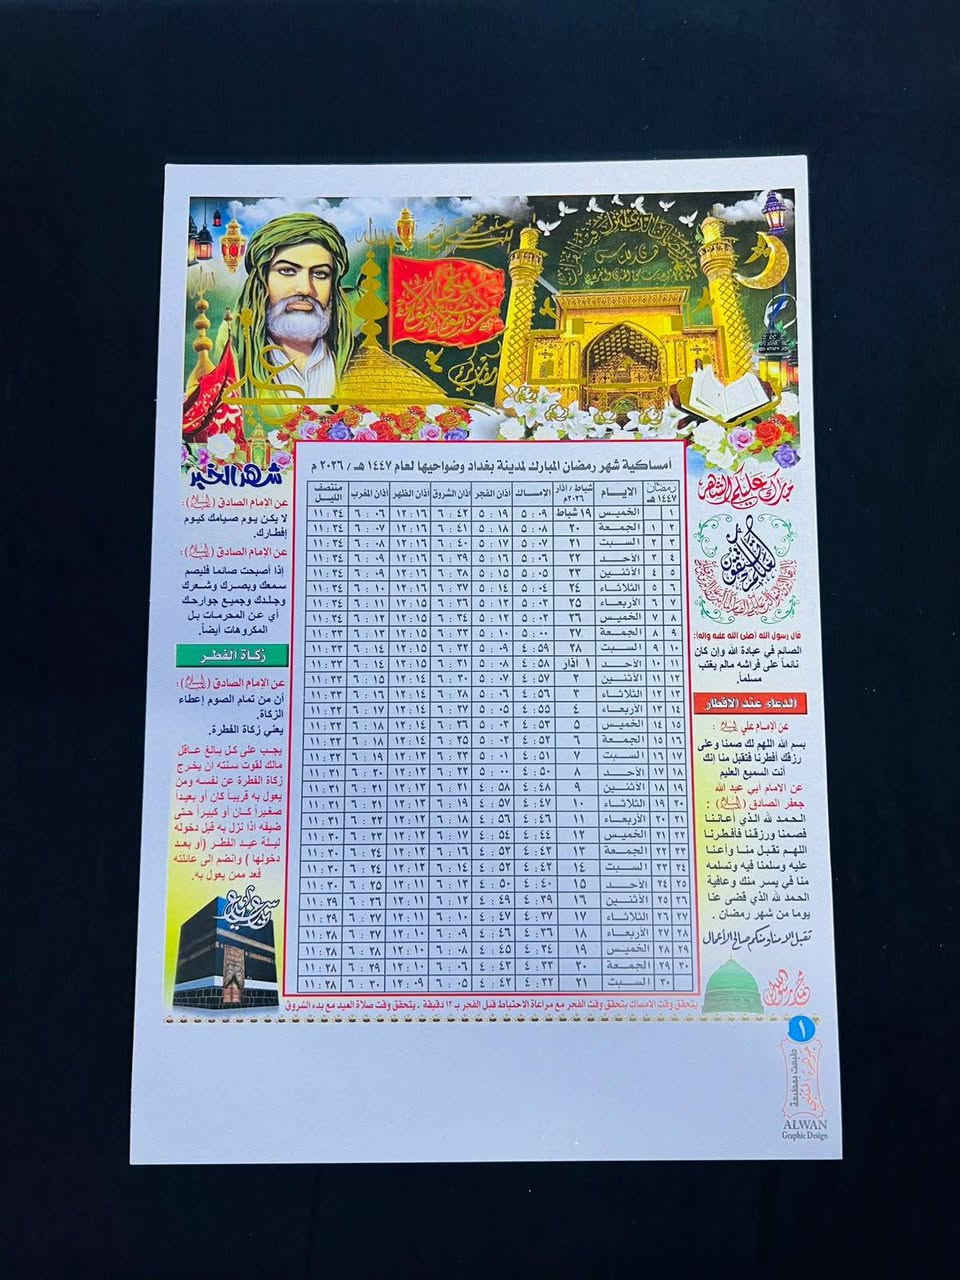 أمساكية شهر رمضان المبارك لمدينة بغداد وضواحيها لعام ١٤٤٧ هـ / ٢٠٢٦ م
رمضان ١٤٤٧ هـ الايـــام شباط / آذار ٢٠٢٦م الامساك أذان الفجر أذان الشروق أذان الظهر أذان المغرب منتصف الليل
١ الخميس ١٩ شباط ٥:٠٩ ٥:١٩ ٦:٤٢ ١٢:١٦ ٦:٠٦ ١١:٣٤
٢ ١ الجمعة ٢٠ ٥:٠٨ ٥:١٨ ٦:٤١ ١٢:١٦ ٦:٠٧ ١١:٣٤
٣ ٢ السبت ٢١ ٥:٠٧ ٥:١٧ ٦:٤٠ ١٢:١٦ ٦:٠٨ ١١:٣٤
٤ ٣ الأحد ٢٢ ٥:٠٦ ٥:١٦ ٦:٣٩ ١٢:١٦ ٦:٠٩ ١١:٣٤
٥ ٤ الأثنين ٢٣ ٥:٠٥ ٥:١٥ ٦:٣٨ ١٢:١٦ ٦:٠٩ ١١:٣٤
٦ ٥ الثلاثاء ٢٤ ٥:٠٤ ٥:١٤ ٦:٣٧ ١٢:١٦ ٦:١٠ ١١:٣٤
٧ ٦ الأربعاء ٢٥ ٥:٠٣ ٥:١٣ ٦:٣٦ ١٢:١٥ ٦:١١ ١١:٣٤
٨ ٧ الخميس ٢٦ ٥:٠٢ ٥:١٢ ٦:٣٤ ١٢:١٥ ٦:١٢ ١١:٣٤
٩ ٨ الجمعة ٢٧ ٥:٠٠ ٥:١٠ ٦:٣٣ ١٢:١٥ ٦:١٣ ١١:٣٣
١٠ ٩ السبت ٢٨ ٤:٥٩ ٥:٠٩ ٦:٣٢ ١٢:١٥ ٦:١٤ ١١:٣٣
١١ ١٠ الأحد ١ آذار ٤:٥٨ ٥:٠٨ ٦:٣١ ١٢:١٥ ٦:١٤ ١١:٣٣
١٢ ١١ الأثنين ٢ ٤:٥٧ ٥:٠٧ ٦:٣٠ ١٢:١٤ ٦:١٥ ١١:٣٣
١٣ ١٢ الثلاثاء ٣ ٤:٥٦ ٥:٠٦ ٦:٢٨ ١٢:١٤ ٦:١٦ ١١:٣٣
١٤ ١٣ الأربعاء ٤ ٤:٥٥ ٥:٠٥ ٦:٢٧ ١٢:١٤ ٦:١٧ ١١:٣٢
١٥ ١٤ الخميس ٥ ٤:٥٣ ٥:٠٣ ٦:٢٦ ١٢:١٤ ٦:١٨ ١١:٣٢
١٦ ١٥ الجمعة ٦ ٤:٥٢ ٥:٠٢ ٦:٢٥ ١٢:١٤ ٦:١٨ ١١:٣٢
١٧ ١٦ السبت ٧ ٤:٥١ ٥:٠١ ٦:٢٤ ١٢:١٣ ٦:١٩ ١١:٣٢
١٨ ١٧ الأحد ٨ ٤:٥٠ ٥:٠٠ ٦:٢٢ ١٢:١٣ ٦:٢٠ ١١:٣١
١٩ ١٨ الأثنين ٩ ٤:٤٨ ٤:٥٨ ٦:٢١ ١٢:١٣ ٦:٢١ ١١:٣١
٢٠ ١٩ الثلاثاء ١٠ ٤:٤٧ ٤:٥٧ ٦:١٩ ١٢:١٣ ٦:٢١ ١١:٣١
٢١ ٢٠ الأربعاء ١١ ٤:٤٦ ٤:٥٦ ٦:١٨ ١٢:١٢ ٦:٢٢ ١١:٣١
٢٢ ٢١ الخميس ١٢ ٤:٤٤ ٤:٥٤ ٦:١٧ ١٢:١٢ ٦:٢٣ ١١:٣٠
٢٣ ٢٢ الجمعة ١٣ ٤:٤٣ ٤:٥٣ ٦:١٦ ١٢:١٢ ٦:٢٤ ١١:٣٠
٢٤ ٢٣ السبت ١٤ ٤:٤٢ ٤:٥٢ ٦:١٤ ١٢:١٢ ٦:٢٤ ١١:٣٠
٢٥ ٢٤ الأحد ١٥ ٤:٤٠ ٤:٥٠ ٦:١٣ ١٢:١١ ٦:٢٥ ١١:٣٠
٢٦ ٢٥ الأثنين ١٦ ٤:٣٩ ٤:٤٩ ٦:١٢ ١٢:١١ ٦:٢٦ ١١:٢٩
٢٧ ٢٦ الثلاثاء ١٧ ٤:٣٧ ٤:٤٧ ٦:١٠ ١٢:١١ ٦:٢٧ ١١:٢٩
٢٨ ٢٧ الأربعاء ١٨ ٤:٣٦ ٤:٤٦ ٦:٠٩ ١٢:١٠ ٦:٢٧ ١١:٢٨
٢٩ ٢٨ الخميس ١٩ ٤:٣٤ ٤:٤٥ ٦:٠٨ ١٢:١٠ ٦:٢٨ ١١:٢٨
٣٠ ٢٩ الجمعة ٢٠ ٤:٣٣ ٤:٤٣ ٦:٠٦ ١٢:١٠ ٦:٢٩ ١١:٢٨
٣٠ السبت ٢١ ٤:٣٢ ٤:٤٢ ٦:٠٥ ١٢:٠٩ ٦:٣٠ ١١:٢٨
يتحقق وقت الامساك بتحقق وقت الفجر مع مراعاة الاحتياط قبل الفجر بـ ١٢ دقيقة . يتحقق وقت صلاة العيد مع بدء الشروق
مبارك عليكم الشهر
لعلكم تتقون
قال رسول الله (صلى الله عليه واله):
الصائم في عبادة الله وإن كان
نائماً على فراشه مالم يغتب
مسلماً.
الدعاء عند الافطار
عن الإمام علي :
بسم الله اللهم لك صمنا وعلى
رزقك أفطرنا فتقبل منا إنك
أنت السميع العليم
عن الإمام أبي عبد الله
جعفر الصادق :
الحمـد لله الذي أعاننـا
فصمنا ورزقنا فأفطرنا
اللهم تقبـل منـا وأعنـا
عليه وسلمنا فيه وتسلمه
منا في يسر منك وعافية
الحمد لله الذي قضى عنا
يوما من شهر رمضان .
تقبل الله منا ومنكم صالح الأعمال
محمد رسول الله
شهر الخير
عن الإمام الصادق (ع):
لا يكن يـوم صيامك كيـوم
إفطارك.
عن الإمام الصادق (ع):
إذا أصبحت صائما فليصم
سمعك وبصـرك وشـعرك
وجـلدك وجميـع جوارحـك
أي عـن المحرمـات بـل
المكروهات أيضاً.
زكاة الفطر
عن الإمام الصادق (ع):
أن من تمام الصوم إعطاء
الزكاة.
يعني زكاة الفطرة.
يجـب على كل بالغ عـاقل
مالك لقوت سنته أن يخرج
زكاة الفطرة عن نفسه ومن
يعول به قريبا كان أو بعيداً
صغيراً كـان أو كبيـراً حتـى
ضيفه اذا نزل به قبل دخوله
ليلـة عيـد الفطـر (أو بعـد
دخولها ) وانضم إلى عائلته
فعد ممن يعول به.
١
طبعت بمطبعة
ALWAN
Graphic Design